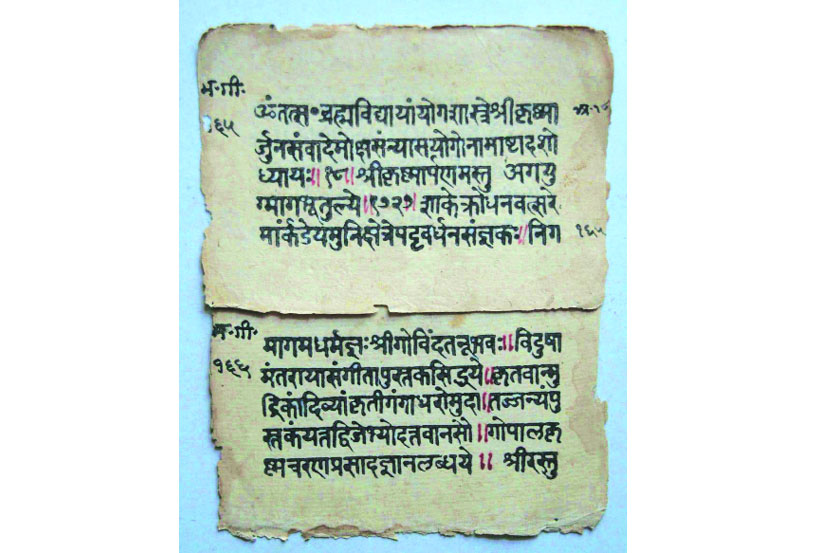 भ॰गी॰
ॐतत्स॰ब्रह्मविद्यायांयोगशास्त्रेश्रीकृष्णा अ॰१८
१६५
र्जुनसंवादेमोक्षसंन्यासयोगोनामाष्टादशो
ध्यायः॥१८॥ श्रीकृष्णार्पणमस्तु अगयु
ग्मागभूतुल्ये॥१७२७॥ शाकेक्रोधनवत्सरे
मार्कंडेयमुनिक्षेत्रेपट्टवर्धनसंज्ञकः॥निग १६५
भ॰गी॰
मागमधर्मज्ञःश्रीगोविंदतनूभवः॥विदुषा
१६६
मंतरायासंगीतापुस्तकसिद्धये॥कृतवान्मु
द्रिकांदिव्यांकृतीगंगाधरोमुदा॥तज्जन्यंपु
स्तकंयत्नद्विजेभ्योदत्तवानसौ॥गोपालकृ
ष्णचरणप्रसादज्ञानलब्धये॥ श्रीरस्तु